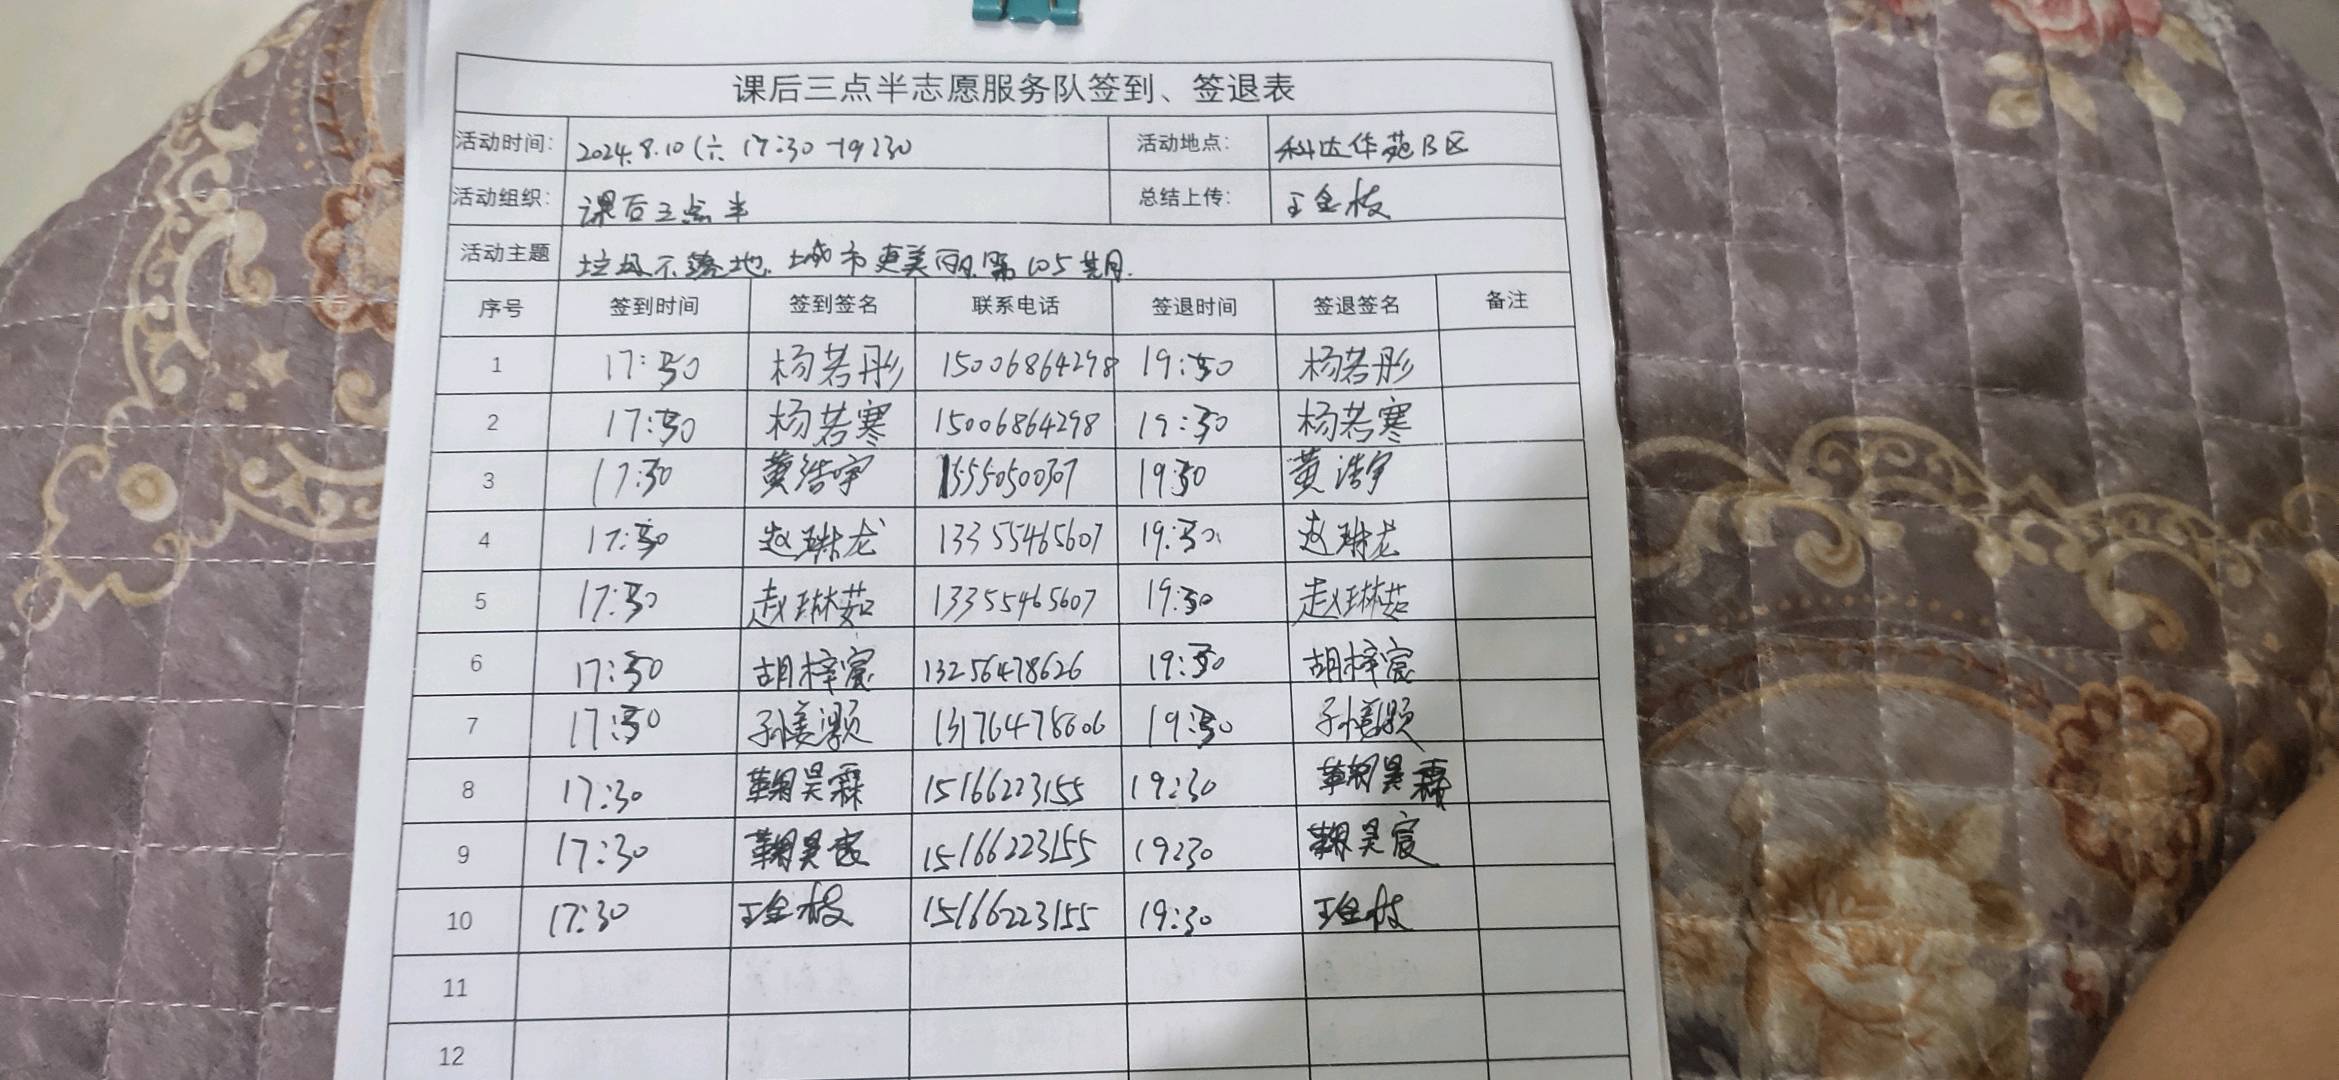 课后三点半志愿服务队签到、签退表
活动时间: 2024.8.10(六 17:30-19:30 活动地点: 科达华苑B区
活动组织: 课后三点半 总结上传: 王金枝
活动主题 垃圾不落地.城市更美丽.第105期.
序号 签到时间 签到签名 联系电话 签退时间 签退签名 备注
1 17:30 杨若彤 15006864298 19:30 杨若彤
2 17:30 杨若寒 15006864298 19:30 杨若寒
3 17:30 黄浩宇 15550500307 19:30 黄浩宇
4 17:30 赵琳龙 13355465607 19:30 赵琳龙
5 17:30 赵琳茹 13355465607 19:30 赵琳茹
6 17:30 胡梓宸 13256478626 19:30 胡梓宸
7 17:30 13176478606 19:30
8 17:30 鞠昊霖 15166223155 19:30 鞠昊霖
9 17:30 鞠昊宸 15166223155 19:30 鞠昊宸
10 17:30 王金枝 15166223155 19:30 王金枝
11
12